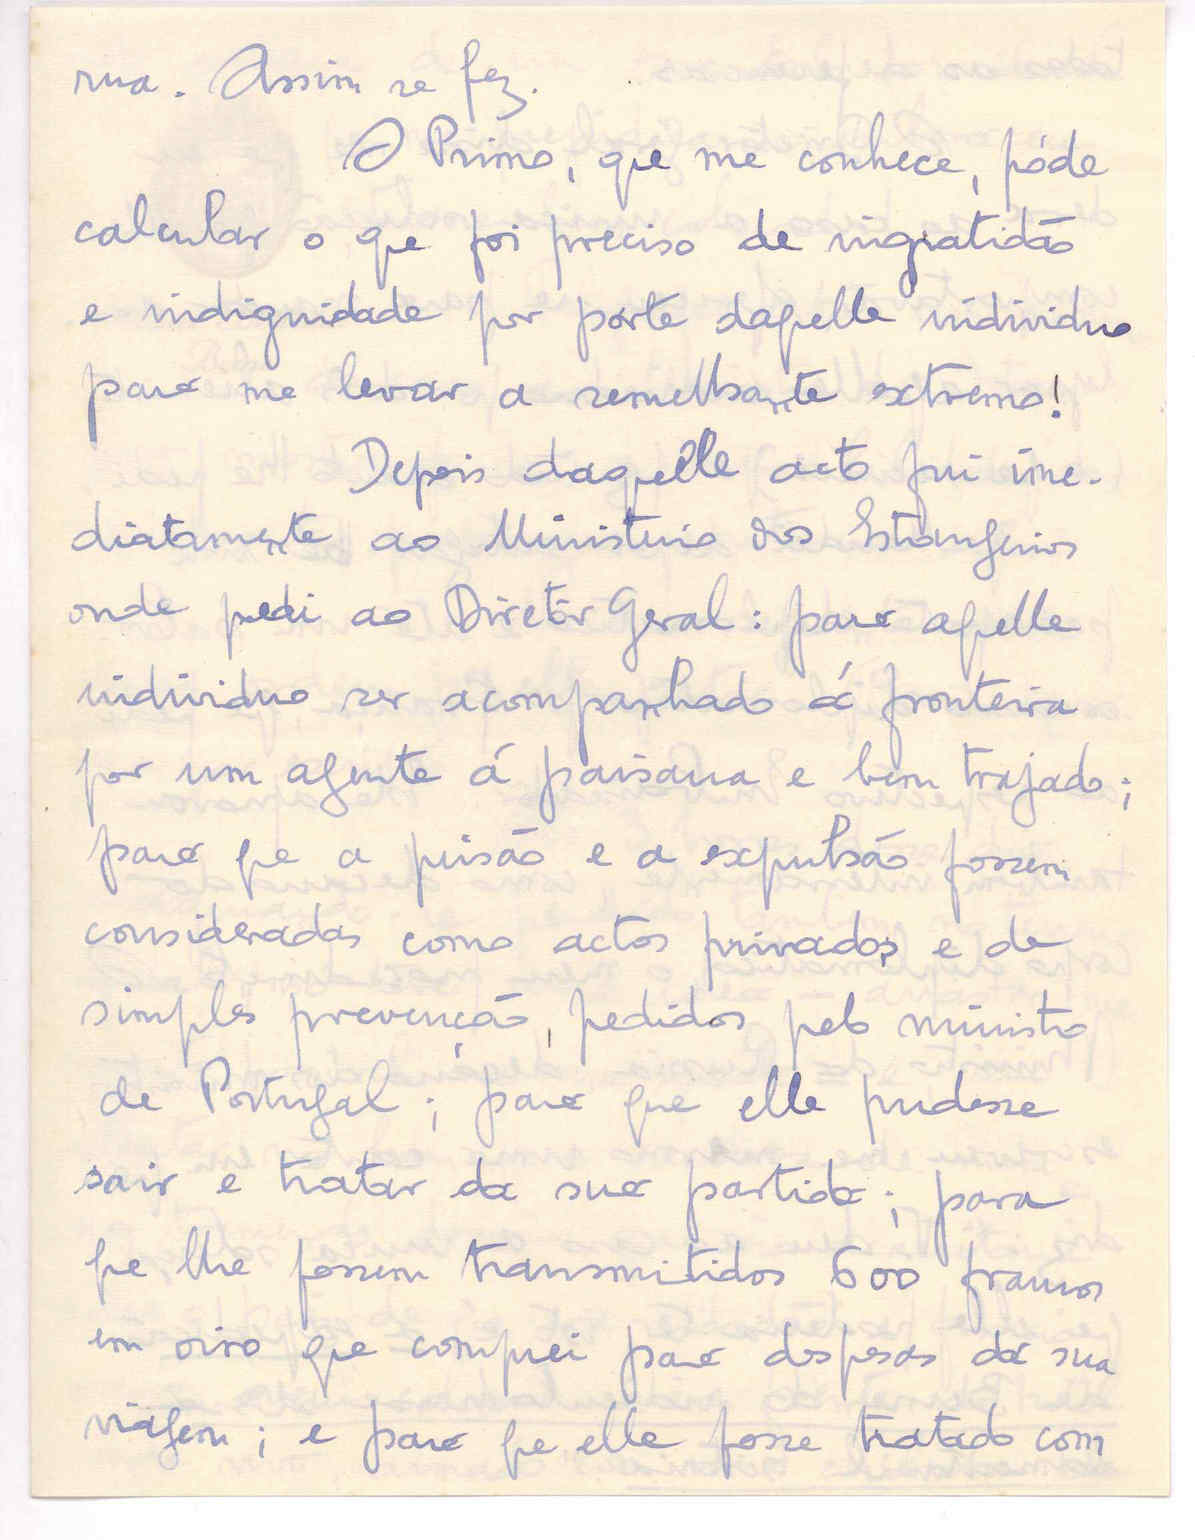 rua. Assim se fez.
O Primo, que me conhece, póde
calcular o que foi preciso de ingratidão
e indignidade por parte daquelle individuo
para me levar a semelhante extremo!
Depois daquelle acto fui ime-
diatamente ao Ministerio dos Estrangeiros
onde pedi ao Diretor Geral: para aquelle
individuo ser acompanhado á fronteira
por um agente á paisana e bem trajado;
para que a prisão e a expulsão fossem
consideradas como actos privados e de
simples prevenção, pedidos pelo ministro
de Portugal; para que elle pudesse
sair e tratar da sua partida; para
que lhe fossem transmitidos 600 francos
em oiro que comprei para despesas da sua
viagem; e para que elle fosse tratado com